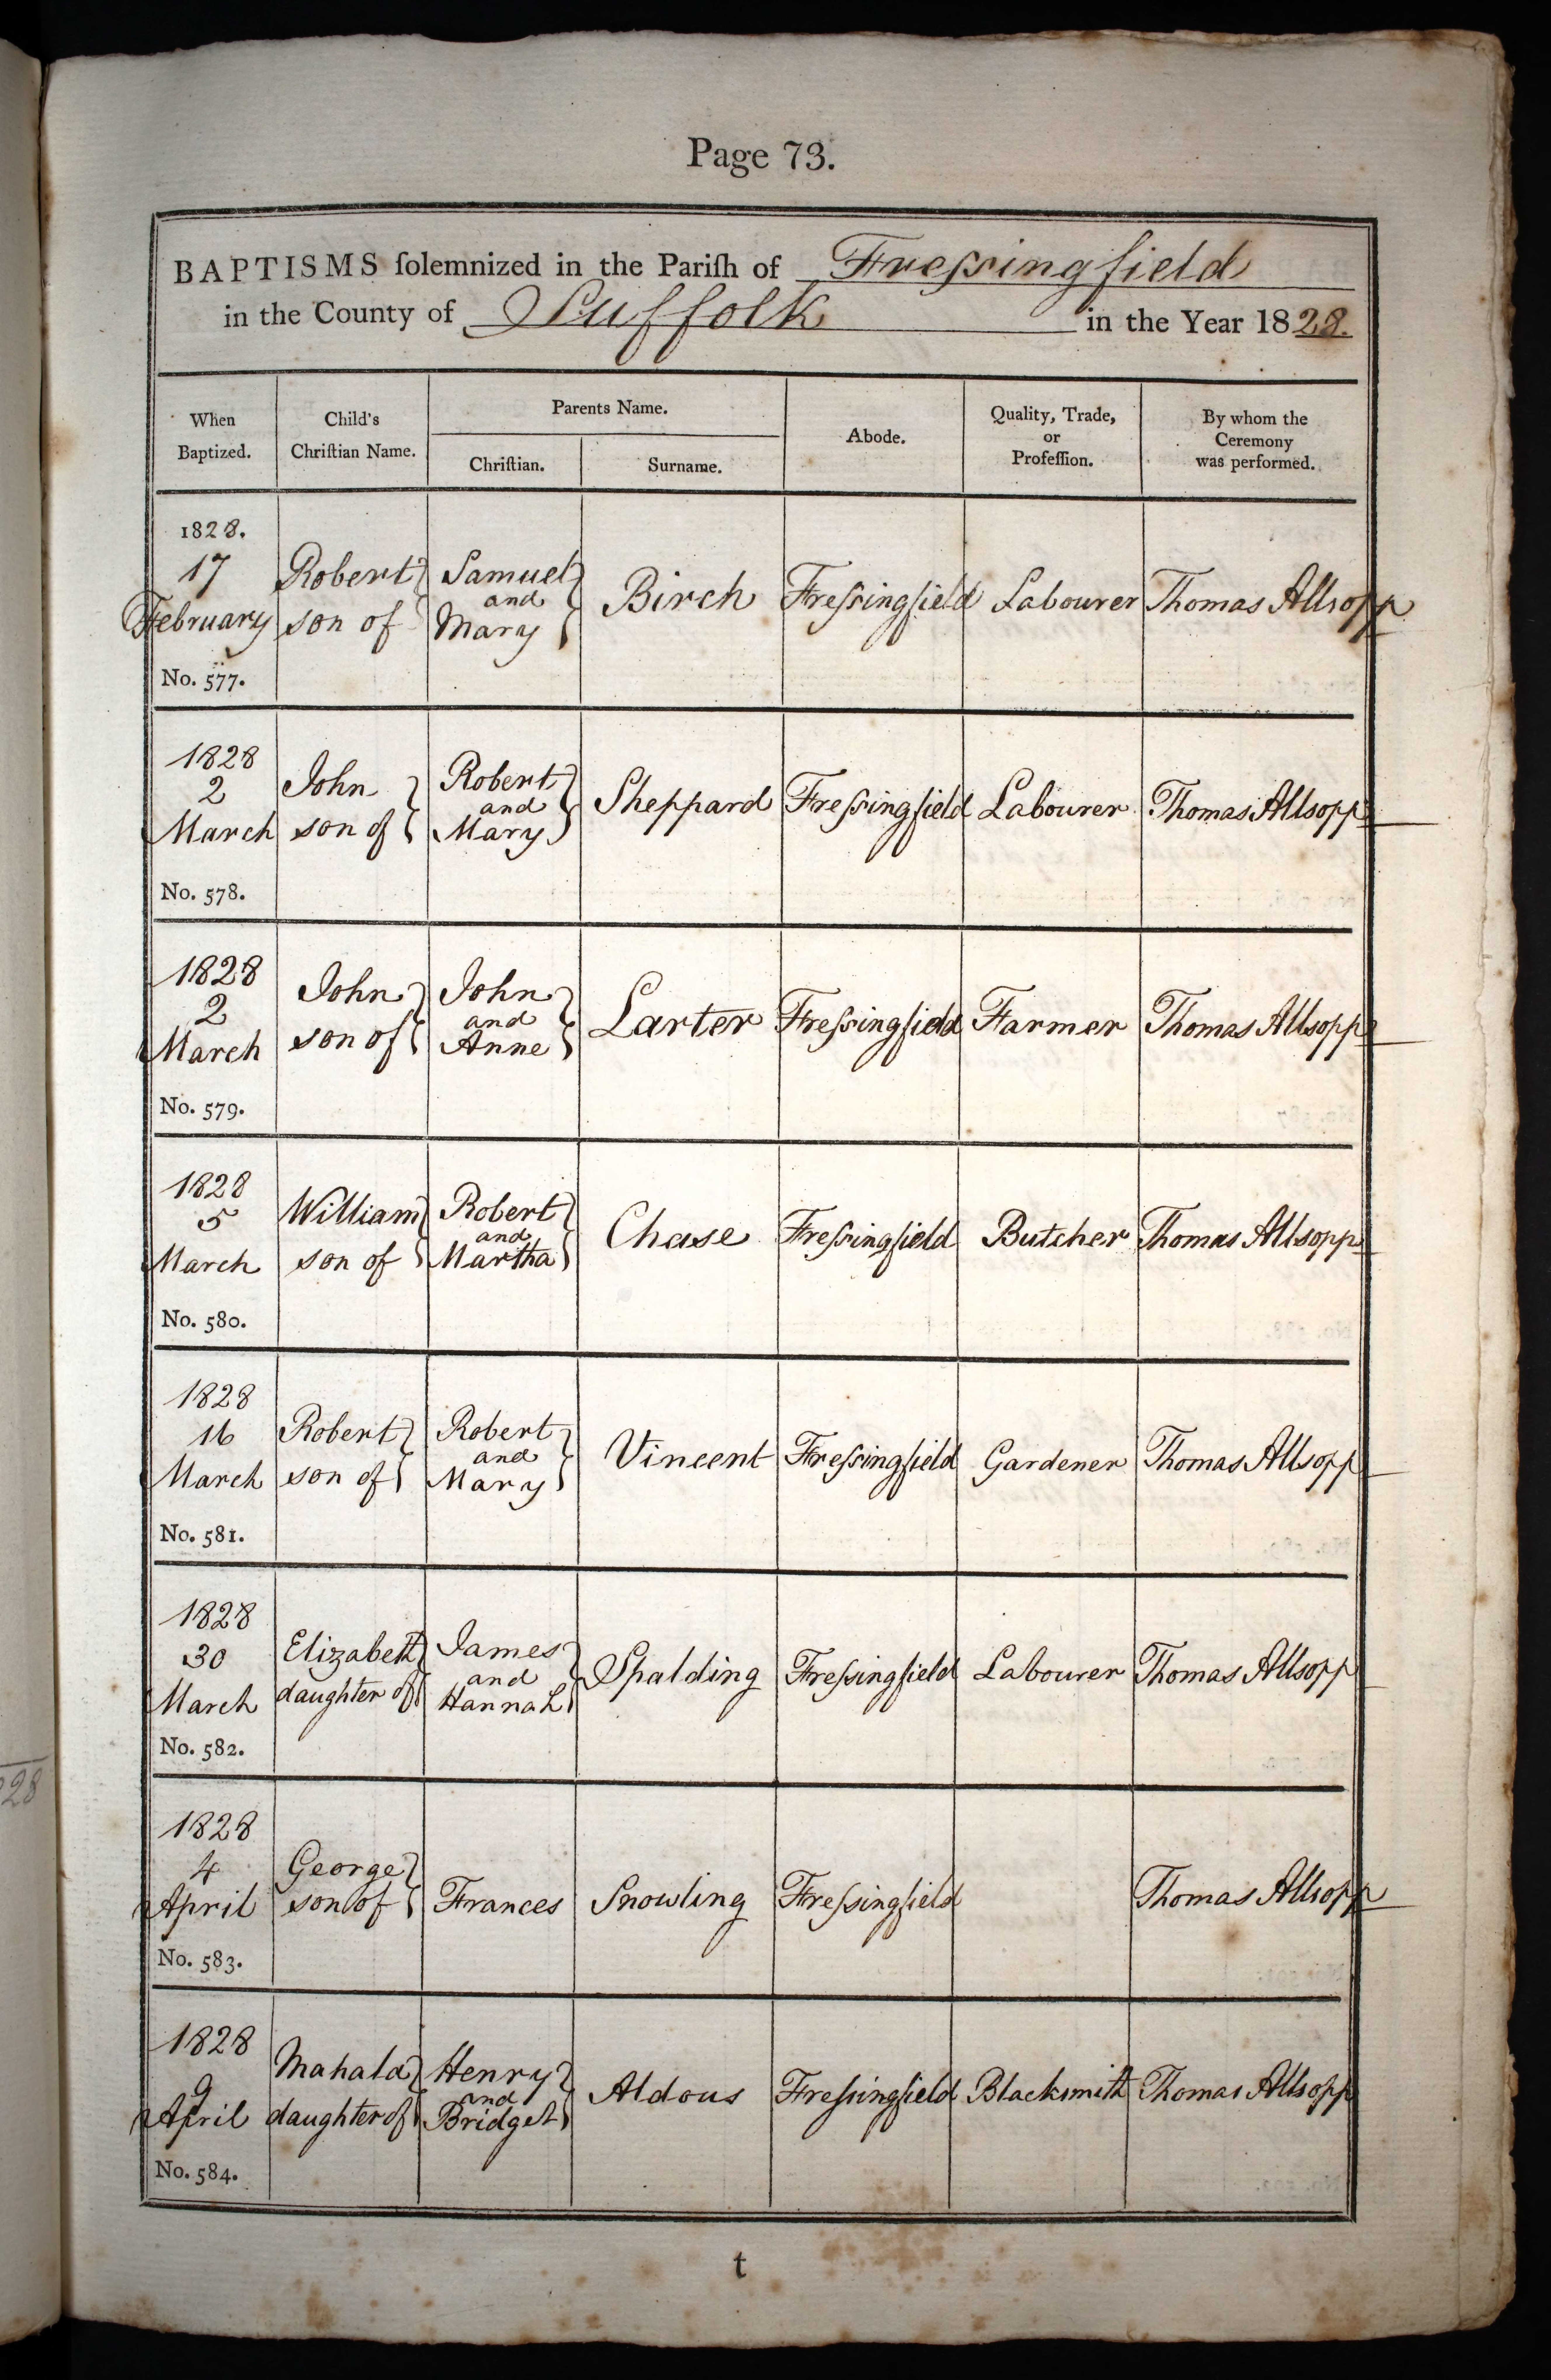 Page 73.
BAPTISMS ſolemnized in the Pariſh of Freſsingfield
in the County of Suffolk in the Year 1828.
When Baptized. Child's Chriſtian Name. Parents Name. Chriſtian. Surname. Abode. Quality, Trade, or Profeſſion. By whom the Ceremony was performed.
1828.
17 Robert Samuel
and Birch Freſsingfield Labourer Thomas Allsopp
February son of Mary
No. 577.
1828
2 John Robert
and Sheppard Freſsingfield Labourer Thomas Allsopp
March son of Mary
No. 578.
1828
2 John John
and Larter Freſsingfield Farmer Thomas Allsopp
March son of Anne
No. 579.
1828
5 William Robert
and Chase Freſsingfield Butcher Thomas Allsopp
March son of Martha
No. 580.
1828
16 Robert Robert
and Vincent Freſsingfield Gardener Thomas Allsopp
March son of Mary
No. 581.
1828
30 Elizabeth James
and Spalding Freſsingfield Labourer Thomas Allsopp
March daughter of Hannah
No. 582.
1828
4 George
April son of Frances Snowling Freſsingfield Thomas Allsopp
No. 583.
1828
9 Mahala Henry
and Aldous Freſsingfield Blacksmith Thomas Allsopp
April daughter of Bridget
No. 584.
t
28